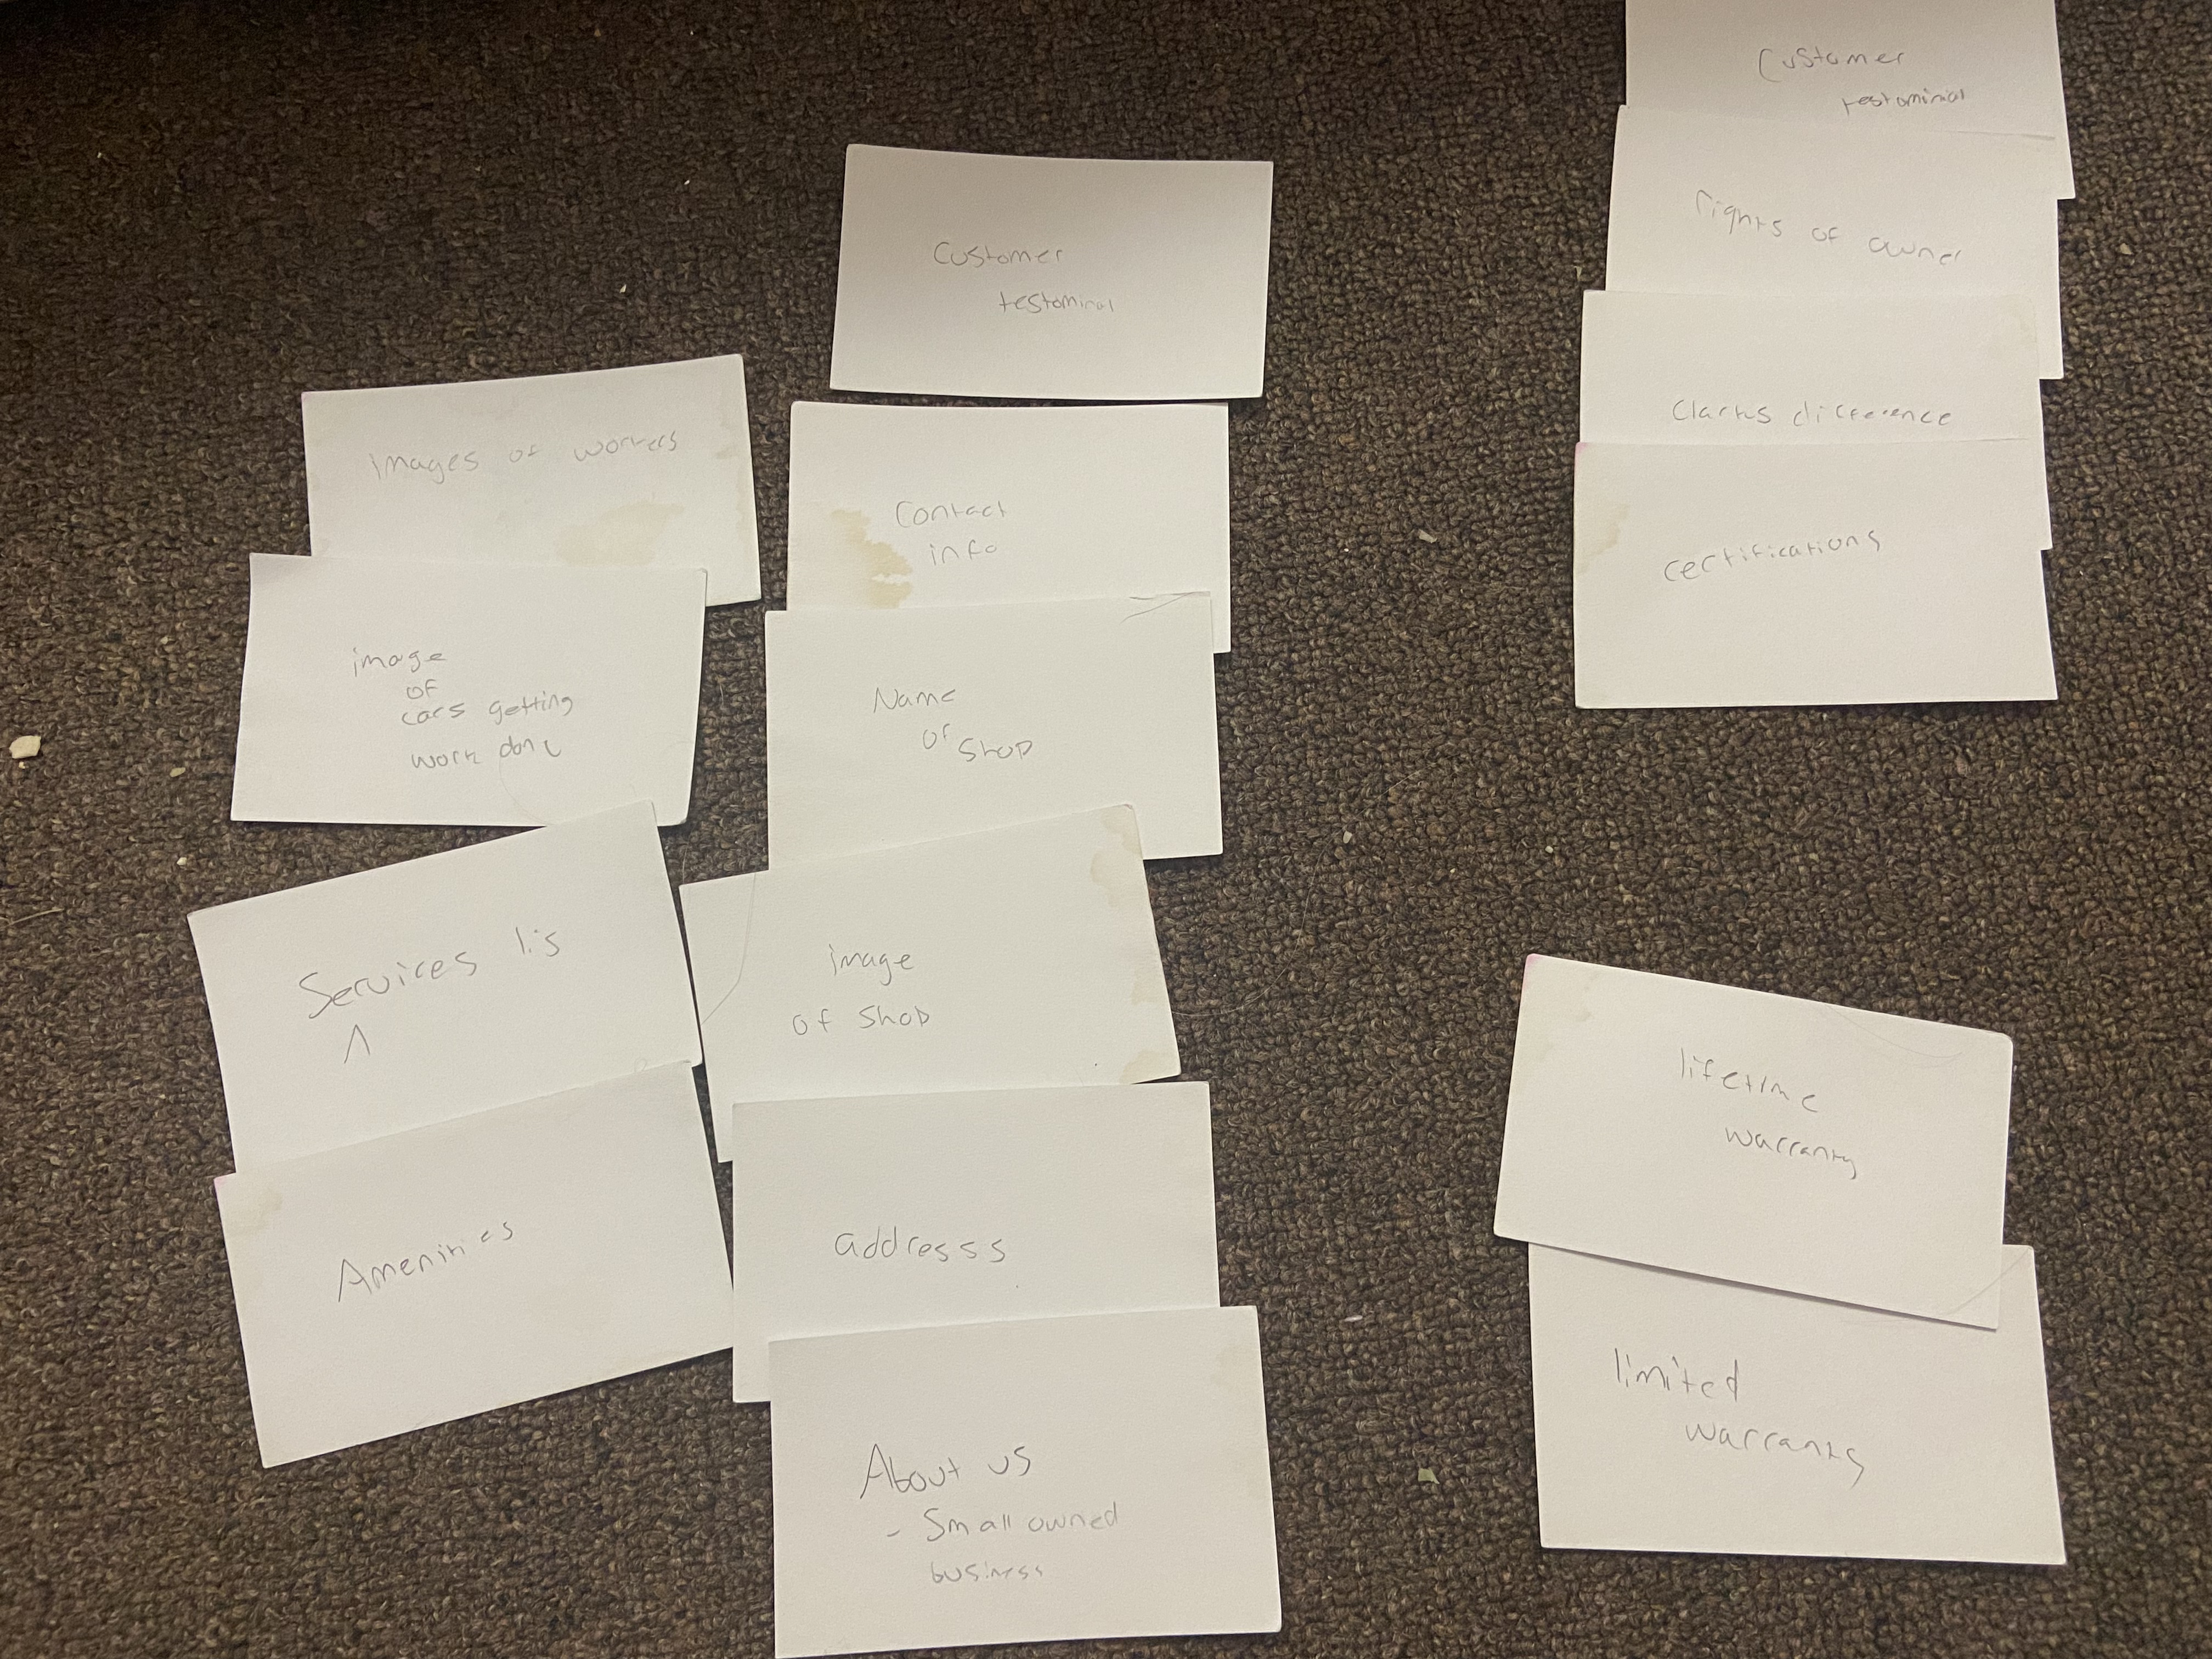 images of workers
image
of
cars getting
work done
Services lis
Amenities
Customer
testominal
Contact
info
Name
of
Shop
image
of Shop
addresss
About us
- Small owned
business
Customer
testominial
rights of owner
Clarks difference
certifications
lifetime
warranty
limited
warranty